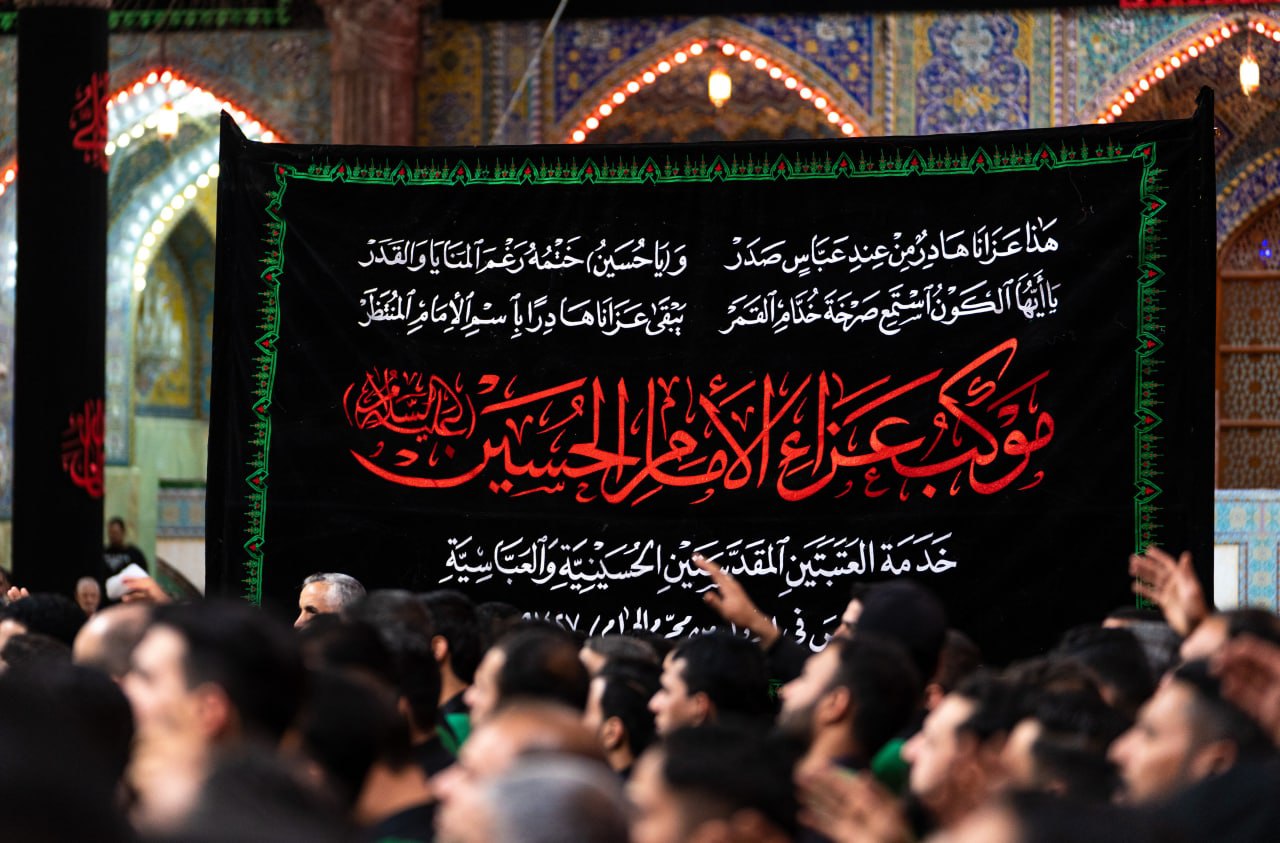 هٰذا عَزَانَا هَادِرٌ مِنْ عِندِ عَبَاسٍ صَدَرْ وَ(يَا حُسَينُ) خَتْمُهُ رَغْمَ ٱلمَنَايَا وَالقَدَرْ
يَا أَيُّهَا ٱلكَوْنُ ٱسْتَمِعْ صَرْخَةَ خُدَّامِ ٱلقَمَرْ يَبْقَىٰ عَزَانَا هَادِرًا بِٱسْمِ ٱلإِمَامِ ٱلمُنْتَظَرْ
مَوْكِبُ عَزَاءِ الأَمَامِ الحُسَيْنِ (عَلَيْهِ السَّلَامُ)
خَدَمَة العَتَبَتَينِ ٱلمُقَدَّسَتَيْنِ الحُسَيْنِيَّةِ وَٱلعَبَّاسِيَّةِ